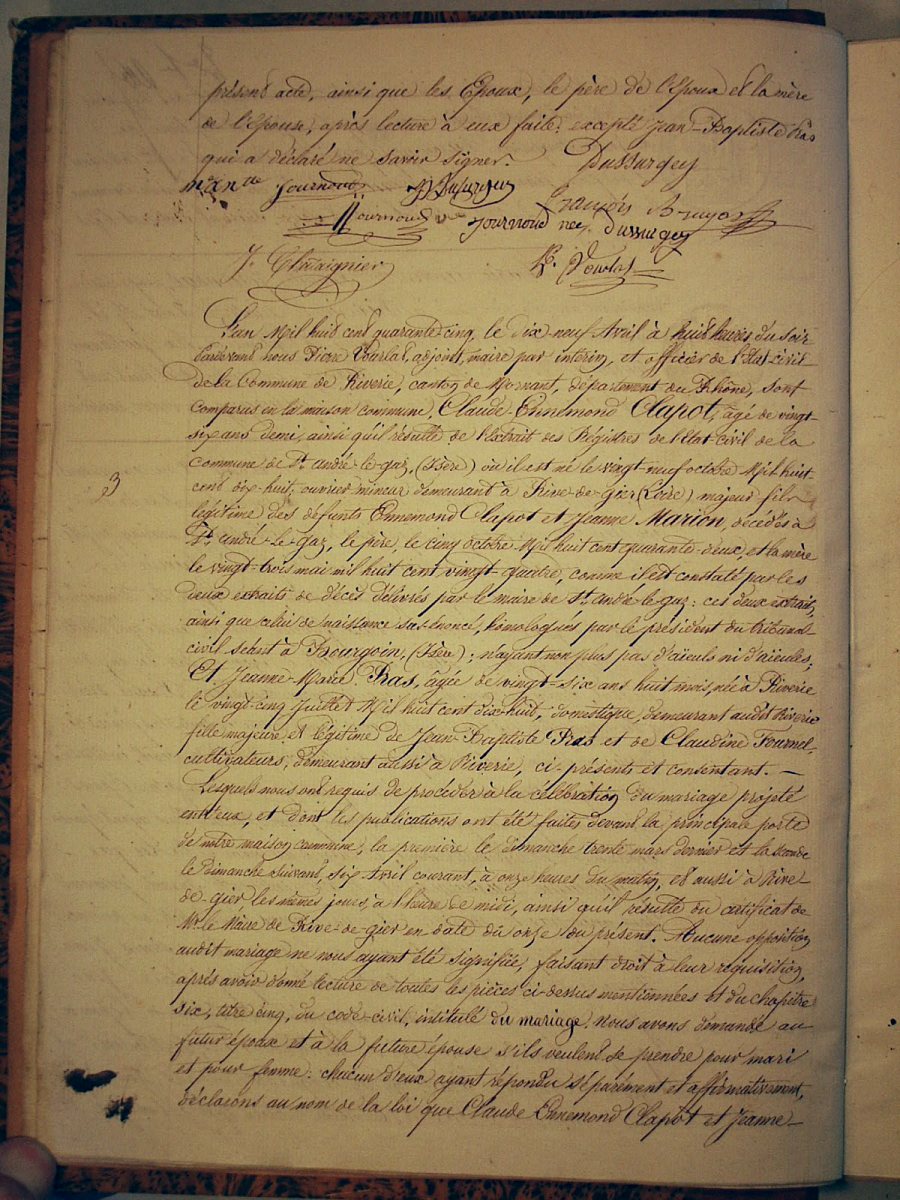 présent acte, ainsi que les Epoux, le père de l'époux et la mère
de l'épouse, après lecture à eux faite; excepté Jean-Baptiste Pras
qui a déclaré ne savoir signer. Dussurgey
Journoud JB Dusurgey
François Bruyas
Journoud Journoud née Dussurgey
J. Chavaignier P. Vourlat
L'an Mil huit cent quarante-cinq, le dix-neuf Avril à huit heures du soir
Pardevant nous Pierre Vourlat, adjoint, maire par intérim, et officier de l'Etat-civil
de la Commune de Riverie, canton de Mornant, département du Rhône, sont
comparus en la maison commune, Claude-Ennemond Clapot, âgé de vingt-
six ans demi, ainsi qu'il résulte de l'Extrait des Régistres de l'Etat civil de la
commune de St. andré-le-gaz, (Isère) où il est né le vingt-neuf octobre Mil huit
3
cent dix-huit; ouvrier mineur demeurant à Rive-de-gier (Loire) majeur fils
légitime des défunts Ennemond Clapot et Jeanne Marion, décédés à
St. andré-le-gaz, le père, le cinq octobre Mil huit cent quarante-deux, et la mère
le vingt-trois mai mil huit cent vingt-quatre, comme il est constaté par les
deux extraits de décès délivrés par le maire de St. andré-le-gaz: ces deux extraits,
ainsi que celui de naissance susénoncé, homologués par le président du tribunal
civil séant à Bourgoin, (Isère); n'ayant non plus pas d'aïeuls ni d'aïeules;
Et Jeanne-Marie Pras, âgée de vingt-six ans huit mois, née à Riverie
le vingt-cinq Juillet Mil huit cent dix-huit, domestique, demeurant audit Riverie
fille majeure et légitime de Jean-Baptiste Pras et de Claudine Fournel-
cultivateurs, demeurant aussi à Riverie, ci-présents et consentant. —
Lesquels nous ont requis de procéder à la célébration du mariage projeté
entr'eux, et dont les publications ont été faites devant la principale porte
de notre maison commune; la première le dimanche trente mars dernier et la seconde
le Dimanche suivant, six Avril courant, à onze heures du matin, et aussi à Rive-
de-gier les mêmes jours, à l'heure de midi, ainsi qu'il résulte du certificat de
Mr. le Maire de Rive-de-gier en date du onze du présent. Aucune opposition
audit mariage ne nous ayant été signifiée, faisant droit à leur requisition,
après avoir donné lecture de toutes les pièces ci-dessus mentionnées et du chapitre
six, titre cinq, du code-civil, intitulé du mariage, Nous avons demandé au
futur époux et à la future épouse s'ils veulent se prendre pour mari
et pour femme: chacun d'eux ayant répondu séparément et affirmativement,
déclarons au nom de la loi que Claude Ennemond Clapot et Jeanne-